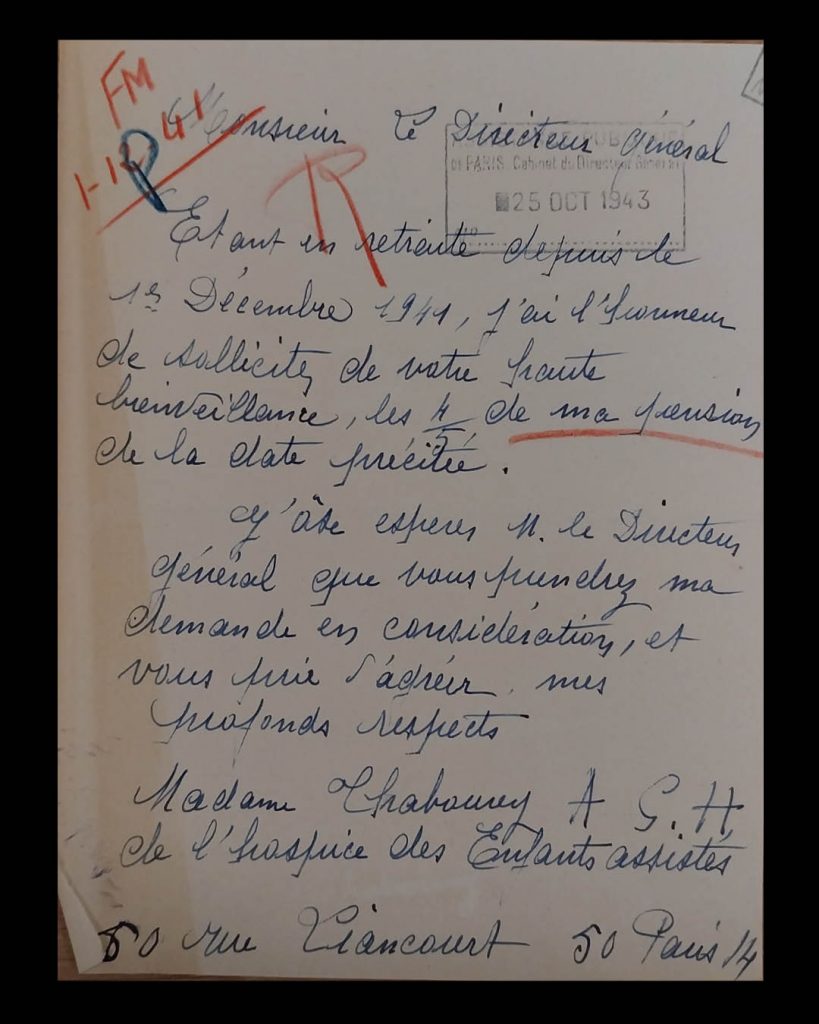 FM
1-12 41
R
R
Monsieur le Directeur général
PUBLIQUE
DE PARIS. Cabinet du Directeur Général
25 OCT 1943
Etant en retraite depuis le
1er Décembre 1941, j'ai l'honneur
de solliciter de votre haute
bienveillance, les 4/5 de ma pension
de la date précitée.
J'ôse esperer M. le Directeur
général que vous prendrez ma
demande en considération, et
vous prie d'agréer mes
profonds respects
Madame Thabourey A G.H
de l'hospice des Enfants assistés
50 rue Liancourt 50 Paris 14